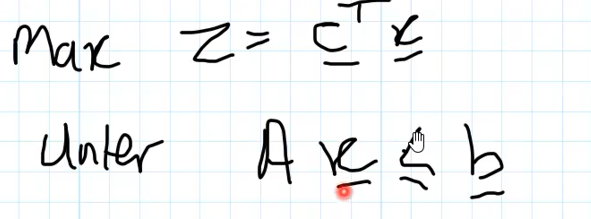 Max Z = c^T x
Unter A x ≤ b